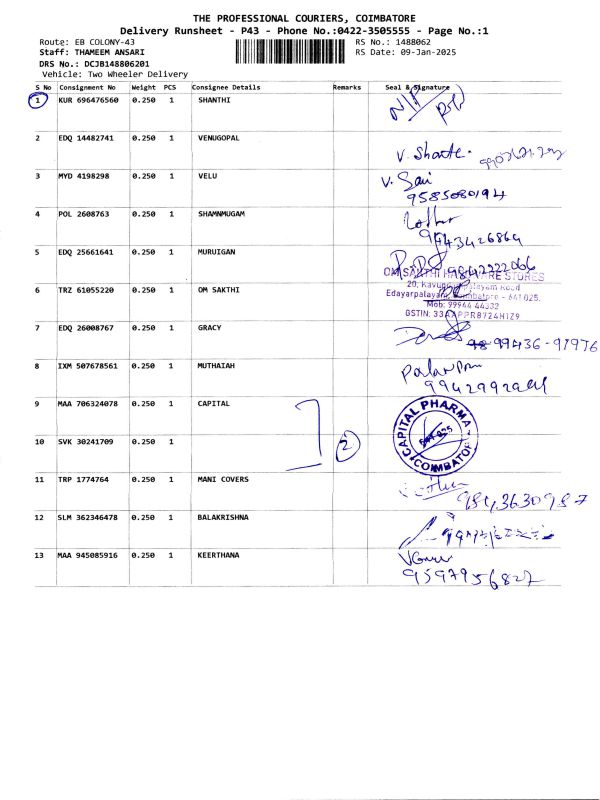 THE PROFESSIONAL COURIERS, COIMBATORE
Delivery Runsheet - P43 - Phone No.:0422-3505555 - Page No.:1
Route: EB COLONY-43 RS No.: 1488062
Staff: THAMEEM ANSARI RS Date: 09-Jan-2025
DRS No.: DCJB148806201
Vehicle: Two Wheeler Delivery
S No Consignment No Weight PCS Consignee Details Remarks Seal & Signature
1 KUR 696476560 0.250 1 SHANTHI
2 EDQ 14482741 0.250 1 VENUGOPAL
3 MYD 4198298 0.250 1 VELU V. Sani
9585080194
4 POL 2608763 0.250 1 SHAMNMUGAM
9943426864
5 EDQ 25661641 0.250 1 MURUIGAN
9842222066
6 TRZ 61055220 0.250 1 OM SAKTHI OM SAKTHI HARDWARE STORES
20,
Edayarpalayam, Coimbatore - 641 025.
Mob: 99944 44332
GSTIN: 33AAPPR8724H1Z9
7 EDQ 26008767 0.250 1 GRACY 99436-97976
8 IXM 507678561 0.250 1 MUTHAIAH
9 MAA 706324078 0.250 1 CAPITAL CAPITAL PHARMA
COIMBATORE
10 SVK 30241709 0.250 1 2
11 TRP 1774764 0.250 1 MANI COVERS
9843630987
12 SLM 362346478 0.250 1 BALAKRISHNA
13 MAA 945085916 0.250 1 KEERTHANA
9597956827